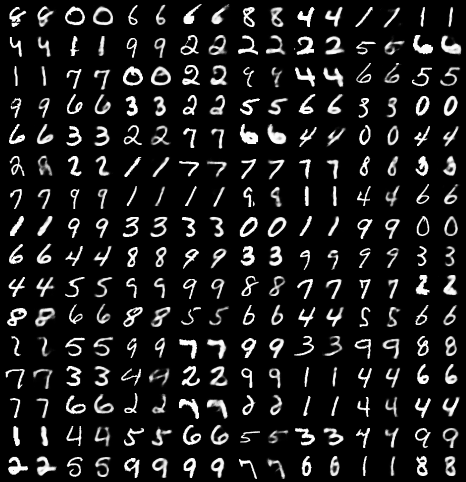 8 8 0 0 6 6 6 6 8 8 4 4 1 1 1 1
4 4 1 1 9 9 2 2 2 2 2 2 5 6 6
1 1 7 7 0 0 2 2 9 9 4 4 6 6 5 5
9 9 6 6 3 3 2 2 5 5 6 6 3 3 0 0
6 6 3 3 2 2 7 7 6 6 4 4 0 0 4 4
2 8 2 2 1 1 7 7 7 7 7 7 8 8 3 3
7 7 9 9 1 1 1 1 9 9 1 1 4 4 6 6
1 1 9 9 3 3 3 3 0 0 1 1 9 9 0 0
6 6 4 4 8 8 9 9 3 3 9 9 9 9 3 3
4 4 5 5 9 9 9 9 8 8 7 7 7 7 2 2
8 8 6 6 8 8 5 5 6 6 4 4 5 5 6 6
2 2 5 5 9 9 7 7 9 9 3 3 9 9 8 8
7 7 3 3 4 4 2 2 9 9 1 1 4 4 6 6
7 7 6 6 2 2 7 7 1 1 4 4 4 4
1 1 4 4 5 5 6 6 5 5 3 3 4 4 9 9
2 2 5 5 9 9 9 9 7 7 6 6 1 1 8 8